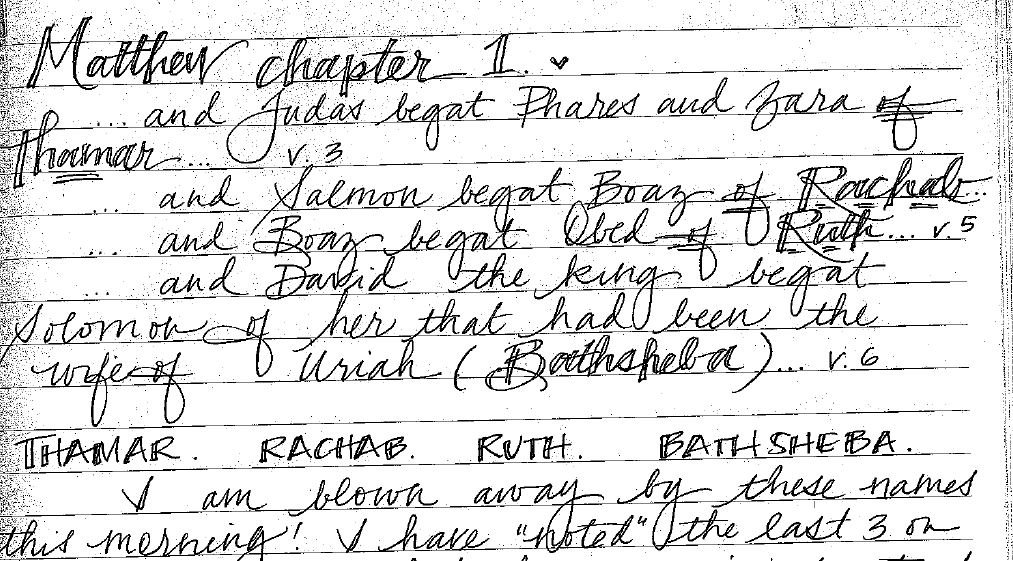 Matthew chapter 1.
... and Judas begat Phares and Zara of
Thamar... v. 3
... and Salmon begat Boaz of Rachab...
... and Boaz begat Obed of Ruth... v. 5
... and David the king begat
Solomon of her that had been the
wife of Uriah (Bathsheba)... v. 6
THAMAR. RACHAB. RUTH. BATHSHEBA.
I am blown away by these names
this morning! I have "noted" the last 3 on